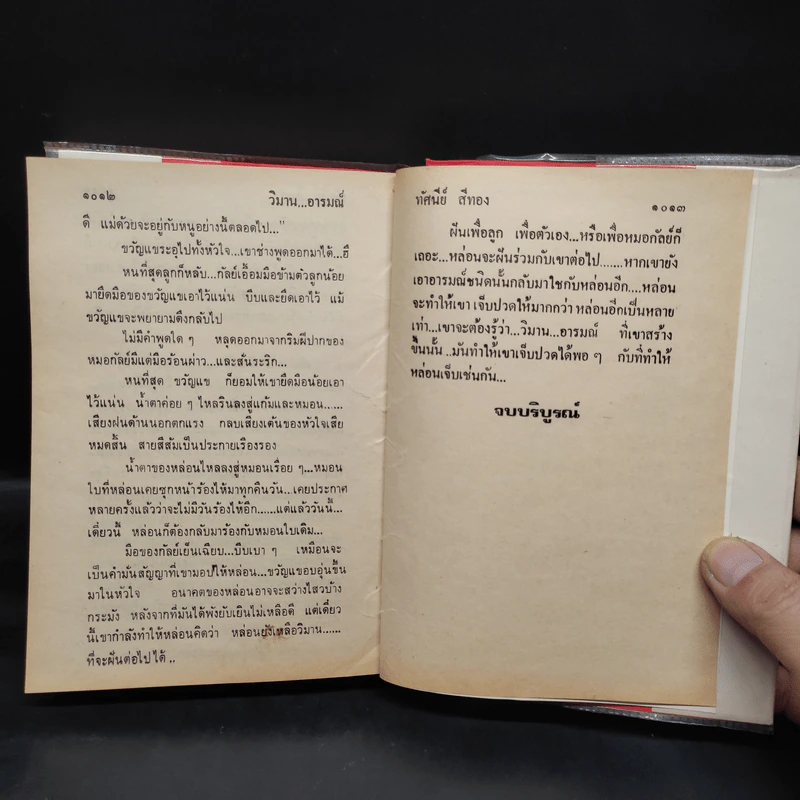 ๑๐๑๒ วิมาน...อารมณ์
ดี แม่ด้วยจะอยู่กับหนูอย่างนี้ตลอดไป..."
ขวัญแขระอุไปทั้งหัวใจ...เขาช่างพูดออกมาได้...ฮึ
หนที่สุดลูกก็หลับ...กัลย์เอื้อมมือข้ามตัวลูกน้อย
มายึดมือของขวัญแขเอาไว้แน่น บีบและยึดเอาไว้ แม้
ขวัญแขจะพยายามดึงกลับไป
ไม่มีคำพูดใด ๆ หลุดออกมาจากริมฝีปากของ
หมอกัลย์มีแต่มือร้อนผ่าว...และสั่นระริก...
หนที่สุด ขวัญแข ก็ยอมให้เขายึดมือน้อยเอา
ไว้แน่น น้ำตาค่อย ๆ ไหลรินลงสู่แก้มและหมอน......
เสียงฝนด้านนอกตกแรง กลบเสียงเต้นของหัวใจเสีย
หมดสิ้น สายสีส้มเป็นประกายเรืองรอง
น้ำตาของหล่อนไหลลงสู่หมอนเรื่อย ๆ...หมอน
ใบที่หล่อนเคยซุกหน้าร้องไห้มาทุกคืนวัน...เคยประกาศ
หลายครั้งแล้วว่าจะไม่มีวันร้องไห้อีก......แต่แล้ววันนี้...
เดี๋ยวนี้ หล่อนก็ต้องกลับมาร้องกับหมอนใบเดิม...
มือของกัลย์เย็นเฉียบ...บีบเบา ๆ เหมือนจะ
เป็นคำมั่นสัญญาที่เขามอบให้หล่อน...ขวัญแขอบอุ่นขึ้น
มาในหัวใจ อนาคตของหล่อนอาจจะสว่างไสวบ้าง
กระมัง หลังจากที่มันได้พังยับเยินไม่เหลือดี แต่เดี๋ยว
นี้เขากำลังทำให้หล่อนคิดว่า หล่อนยังเหลือวิมาน......
ที่จะฝันต่อไปได้ ..
ทัศนีย์ สีทอง ๑๐๑๓
ฝันเพื่อลูก เพื่อตัวเอง...หรือเพื่อหมอกัลย์ก็
เถอะ...หล่อนจะฝันร่วมกับเขาต่อไป......หากเขายัง
เอาอารมณ์ชนิดนั้นกลับมาใช้กับหล่อนอีก....หล่อน
จะทำให้เขา เจ็บปวดให้มากกว่า หล่อนอีกเป็นหลาย
เท่า...เขาจะต้องรู้ว่า...วิมาน...อารมณ์ ที่เขาสร้าง
ขึ้นนั้น ..มันทำให้เขาเจ็บปวดได้พอ ๆ กับที่ทำให้
หล่อนเจ็บเช่นกัน...
จบบริบูรณ์